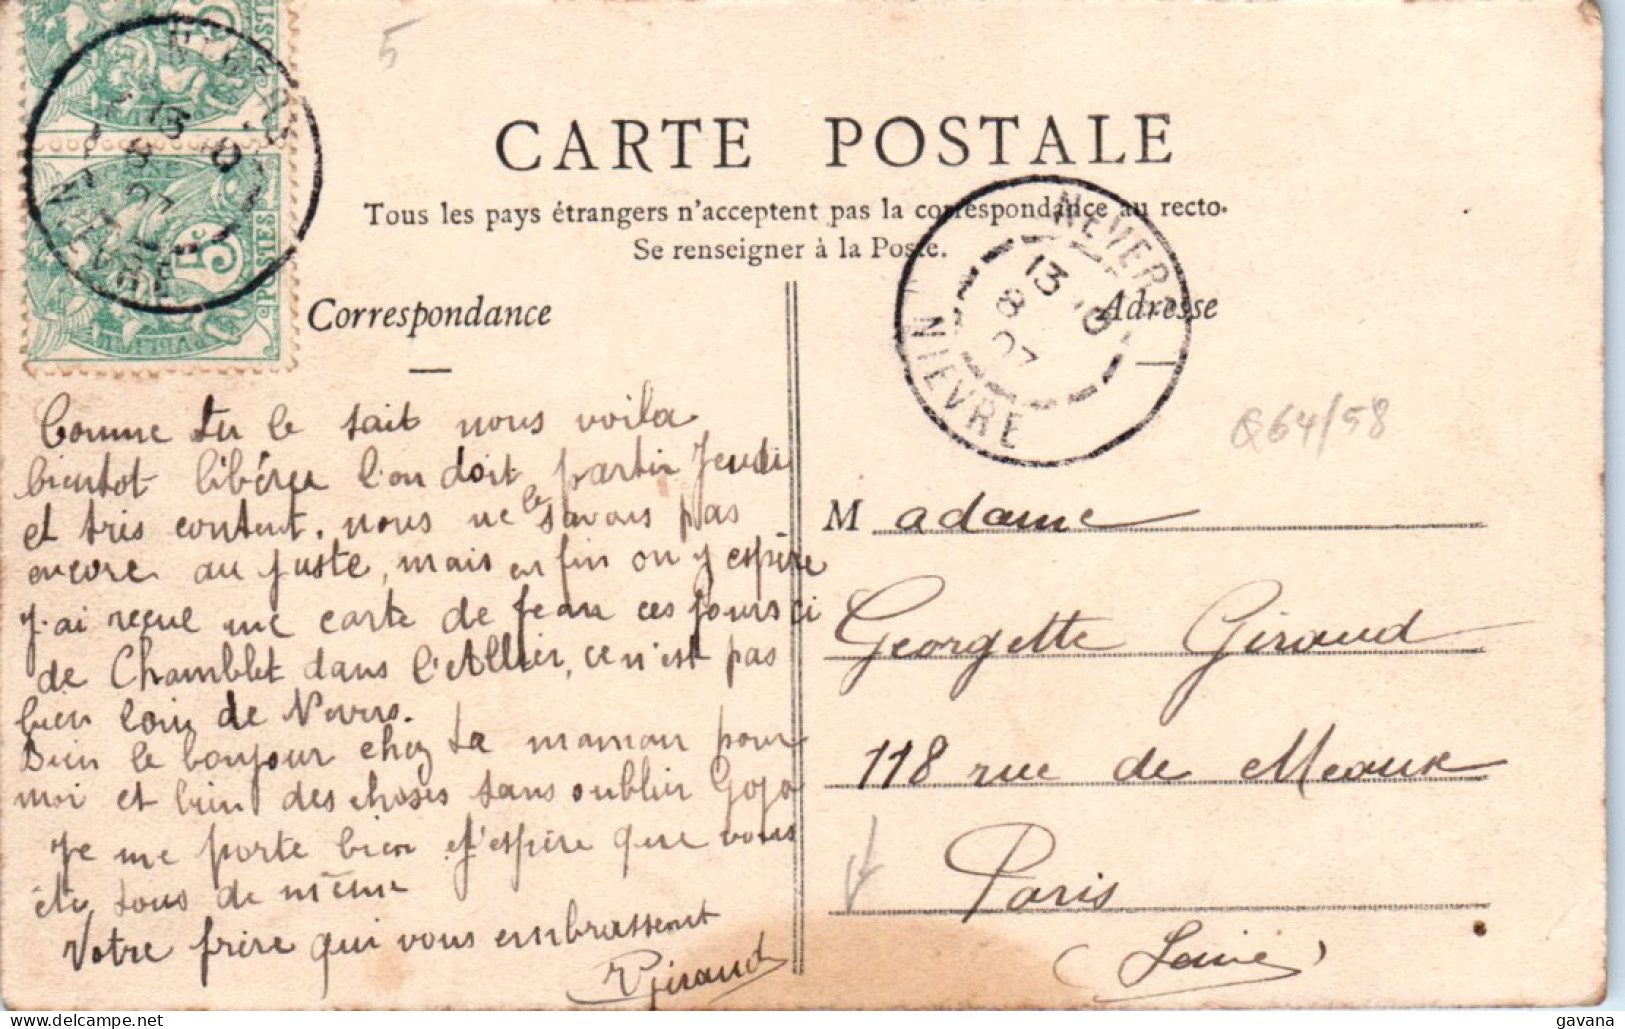 5
CARTE POSTALE
Tous les pays étrangers n'acceptent pas la correspondance au recto.
Se renseigner à la Poste.
Correspondance
Adresse
NEVERS
13
8
07
NIEVRE
NIEVRE
5c
POSTES
Q64/58
Comme tu le sait nous voila
bientot libérer l'on doit partir Jeudi
et très content. nous ne le savons pas
encore au juste, mais enfin on y espère
J'ai reçue une carte de Jean ces jours ci
de Chamblet dans l'Allier, ce n'est pas
bien loin de Nevers.
Bien le bonjour chez ta maman pour
moi et bien des choses sans oublier Gogo
Je me porte bien J'espère que vous
ête tous de même
Votre frère qui vous embrassent
Giraud
Madame
Georgette Giraud
118 rue de Meaux
Paris
(Seine)
gavana